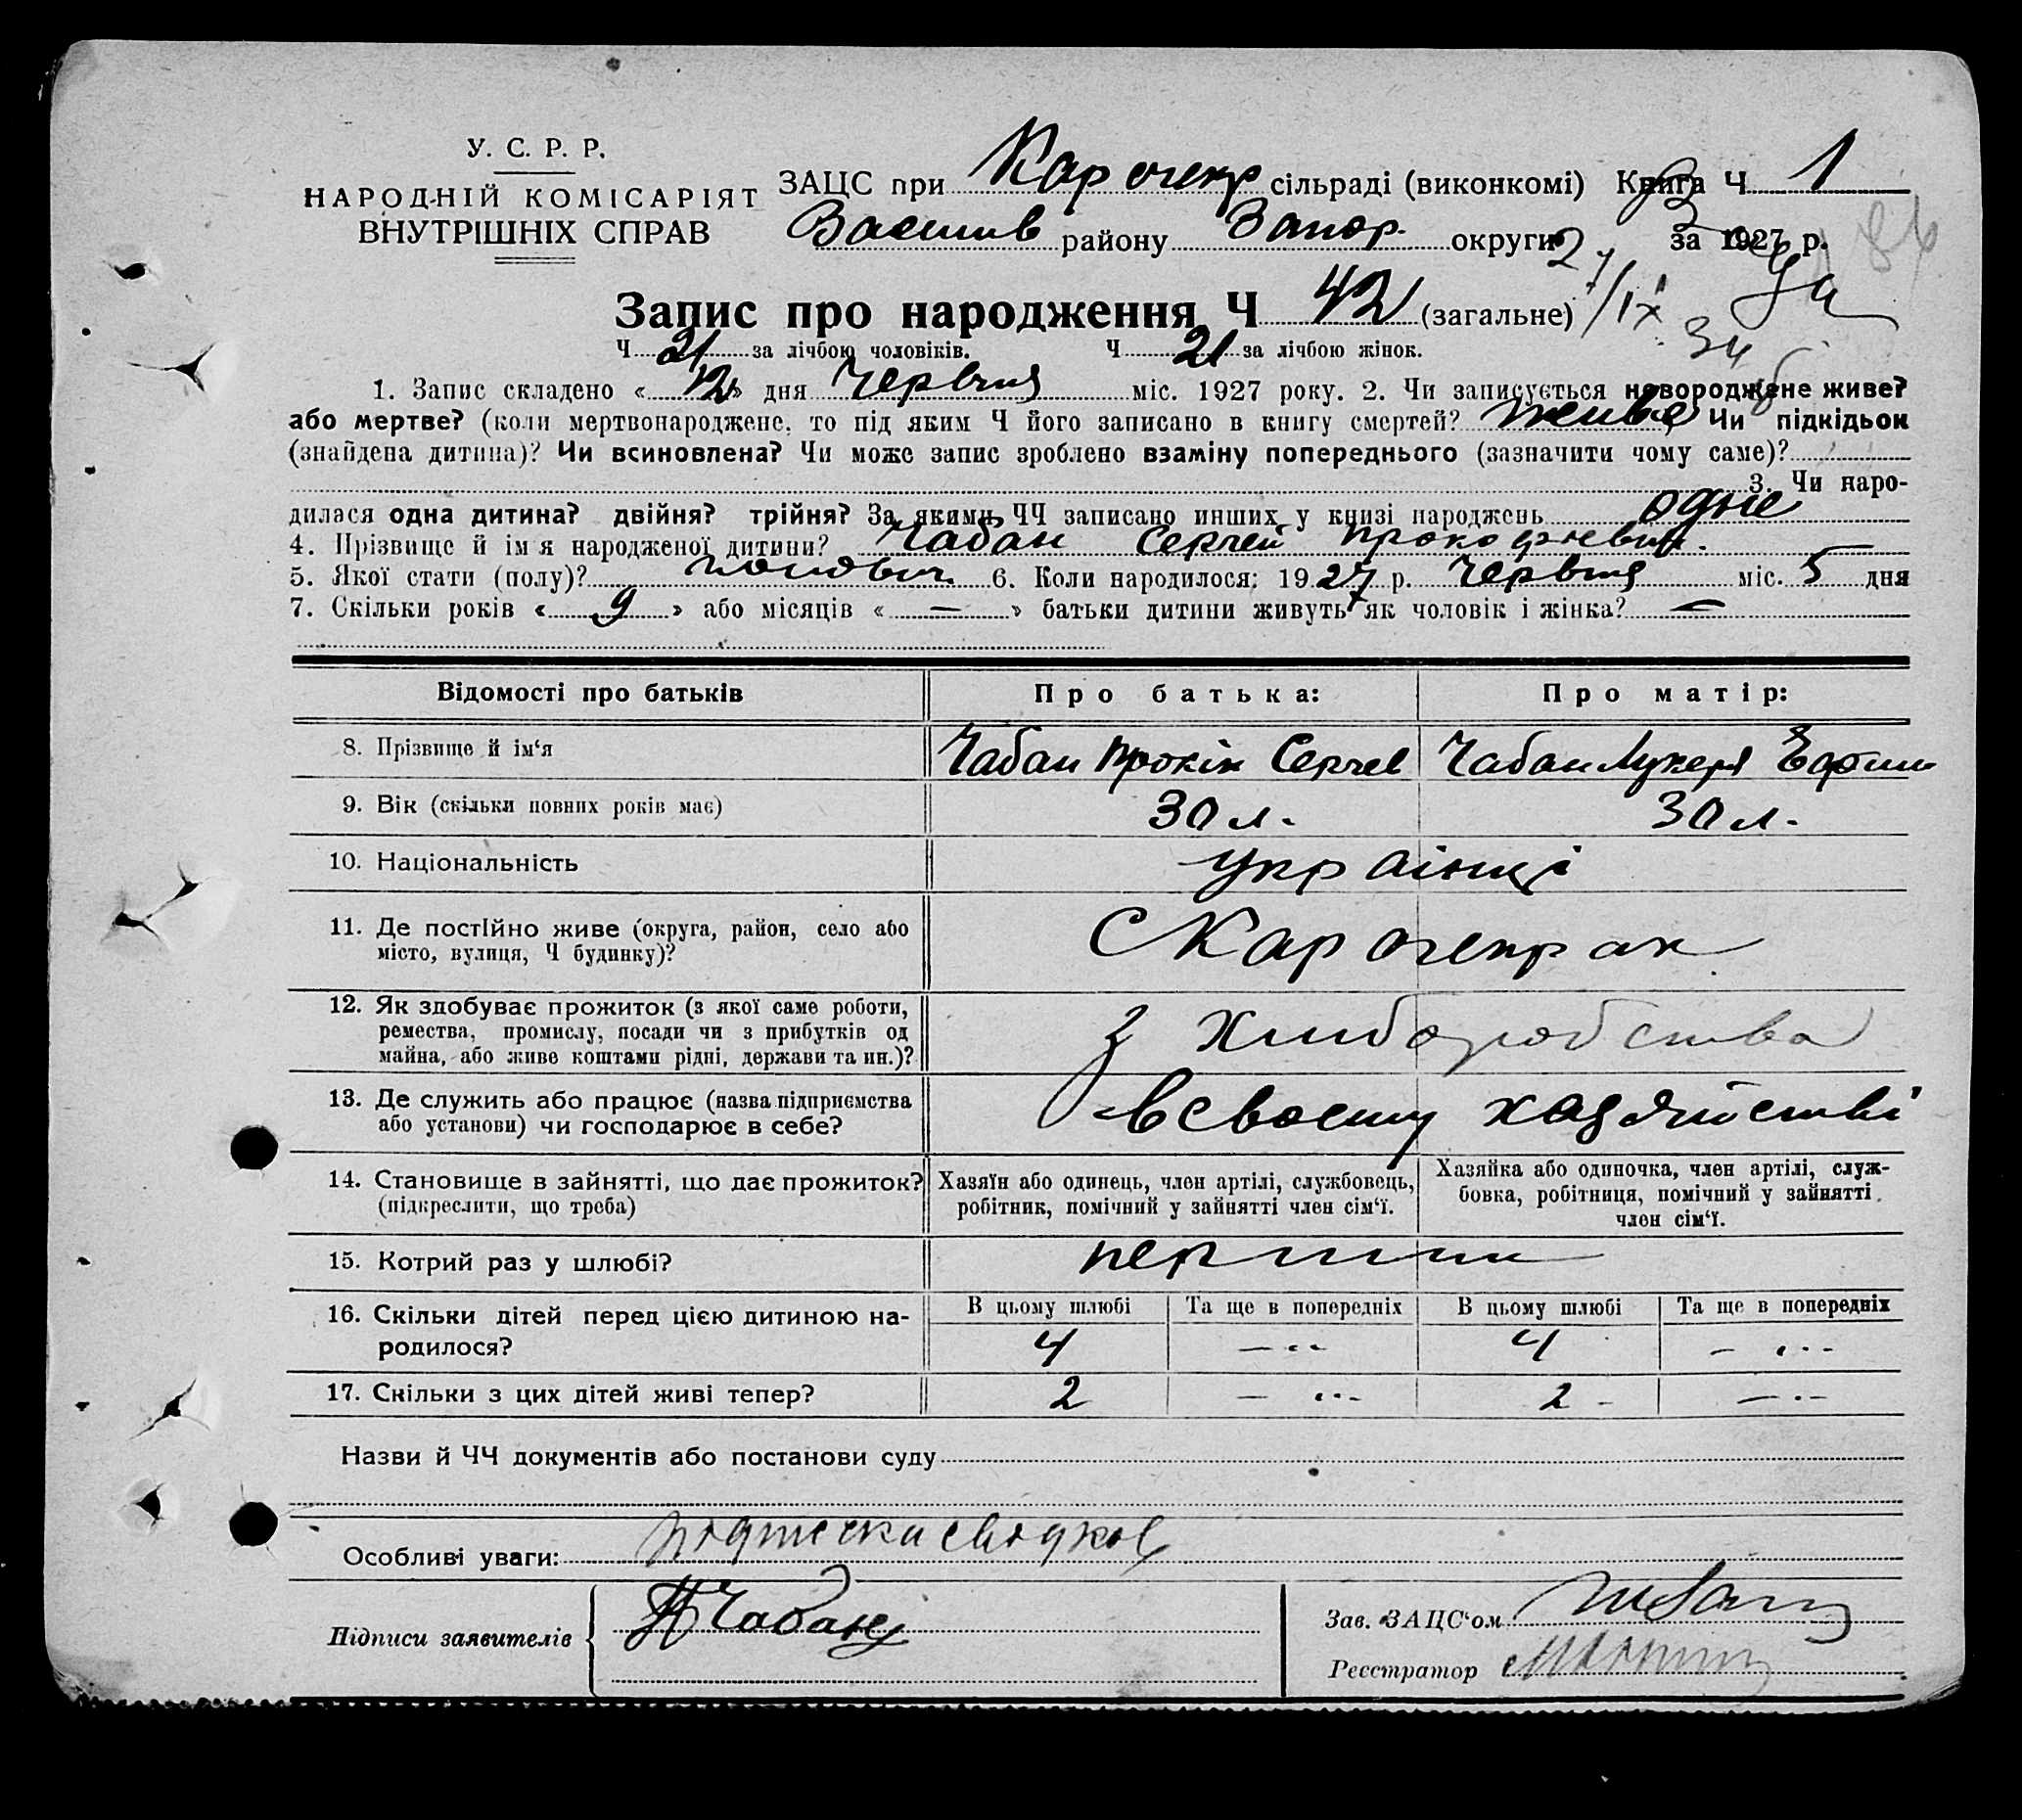 У. С. Р. Р.
НАРОДНІЙ КОМІСАРІЯТ
ВНУТРІШНІХ СПРАВ
ЗАЦС при Карачекр сільраді (виконкомі) Книга Ч 1
Василів району Запор. округи за 1927 р.
Запис про народження Ч 42 (загальне)
Ч 21 за лічбою чоловіків. Ч 21 за лічбою жінок.
1. Запис складено « 12 » дня Червня міс. 1927 року. 2. Чи записується новороджене живе?
або мертве? (коли мертвонароджене, то під яким Ч його записано в книгу смертей? живе Чи підкідьок
(знайдена дитина)? Чи всиновлена? Чи може запис зроблено взаміну попереднього (зазначити чому саме)?
3. Чи наро-
дилася одна дитина? двійня? трійня? За якими ЧЧ записано инших у книзі народжень одне
4. Прізвище й ім я народженої дитини? Чабан Сергей Прокофиевич.
5. Якої стати (полу)? 6. Коли народилося: 1927 р. Червня міс. 5 дня
7. Скільки років « 9 » або місяців « — » батьки дитини живуть як чоловік і жінка? —
Відомості про батьків Про батька: Про матір:
8. Прізвище й ім‘я Чабан Прокіп Сергеев Чабан Лукеря Ефим
9. Вік (скільки повних років має) 30 л. 30 л.
10. Національність українці
11. Де постійно живе (округа, район, село або
місто, вулиця, Ч будинку)? С Карачекрак
12. Як здобуває прожиток (з якої саме роботи,
ремества, промислу, посади чи з прибутків од
майна, або живе коштами рідні, держави та ин.)? З хлиборобства
13. Де служить або працює (назва підприємства
або установи) чи господарює в себе? в своему хазяйстві
14. Становище в зайнятті, що дає прожиток?
(підкреслити, що треба)
Хазяїн або одинець, член артілі, службовець,
робітник, помічний у зайнятті член сім‘ї.
Хазяйка або одиночка, член артілі, служ-
бовка, робітниця, помічний у зайнятті
член сім‘ї.
15. Котрий раз у шлюбі? перший
16. Скільки дітей перед цією дитиною на-
родилося?
В цьому шлюбі Та ще в попередніх В цьому шлюбі Та ще в попередніх
4 — 4 —
17. Скільки з цих дітей живі тепер? 2 — 2 —
Назви й ЧЧ документів або постанови суду
Особливі уваги: подписки свидков
Підписи заявителів П Чабан
Зав. ЗАЦС‘ом
Реєстратор